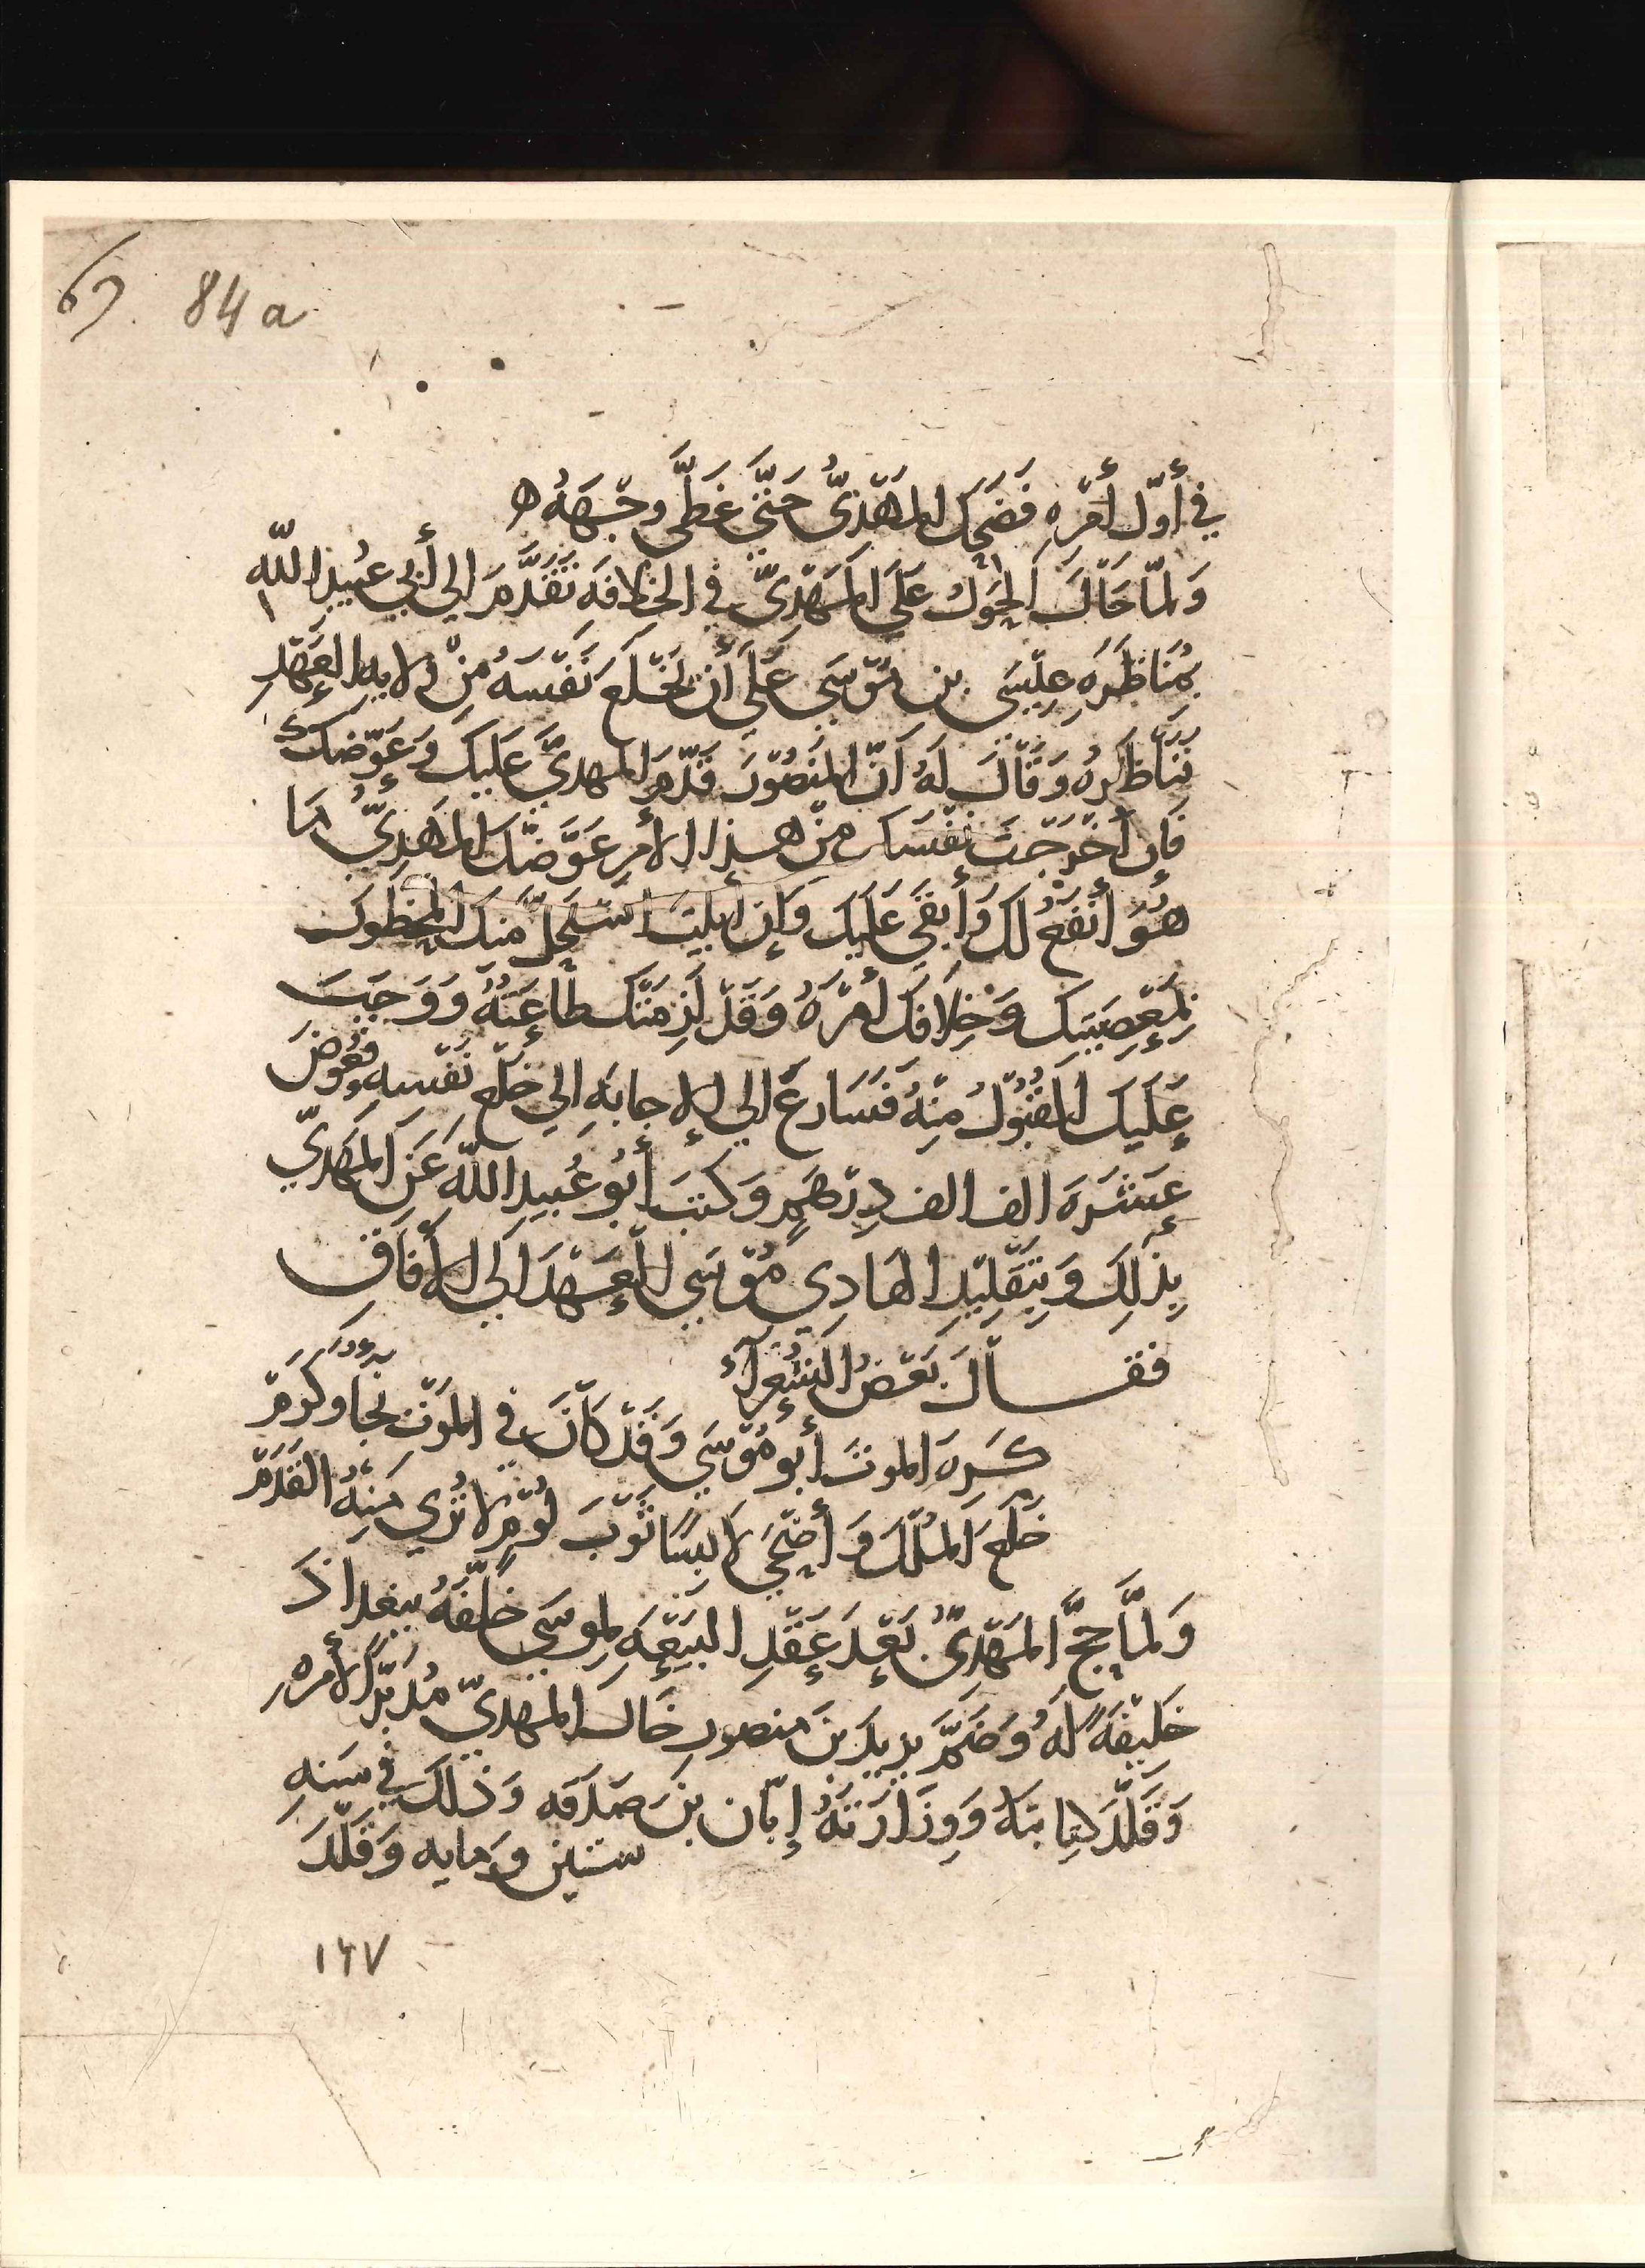 69. 84a
في أَوّل أَمْرِهِ فَضَحِكَ المَهْدِيُّ حَتَّى غَطَّى وجْهَهُ ه
وَلمّا حَالَ الحَوْلُ عَلَى المَهْدِيّ في الخِلافَهِ تَقَدَّمَ الي أَبي عُبيدِ اللّه
بمُنَاظَرَهِ عِيْسَى بن مُوْسَى عَلَى أَن يَخْلَعَ نَفْسَهُ مِنْ ولايه العَهْدِ
فَنَاظَرهُ وَقَالَ لهُ أَنّ المنصُوْرَ قَدّمَ المهديَّ عَلَيكَ وَعَوّضَكَ
فَإِن أَخْرَجْتَ نَفْسَك مِنْ هذا الأَمرِ عَوَّضَكَ المَهْدِيُّ مَا
هُوَ أَنْفَعُ لكَ وَأَبقَى عَلَيكَ وَإِن أَبَيْتَ اسْتَحَلَّ مِنكَ المحظُورَ
بمَعْصِيَتِكَ وَخِلَافِكَ أَمْرَهُ وَقَدْ لَزِمَتْكَ طَاعَتُهُ وَوَجَبَ
عَلَيكَ القبُوْلُ مِنْهُ فَسَارَعَ الي الإِجابَهِ الي خَلْعِ نَفْسه فعُوّضَ
عَشَرَهَ الف الف دِرْهَمٍ وَكتَبَ أَبُو عُبيدِ اللّه عَنِ المَهْدِيّ
بِذَلِكَ وَبِتَقْلِيْدِ الهَادِي مُوْسَي العَهْدَ الَي الأَفَاقِ
فقالَ بَعْضُ الشُّعَرآءِ
كَرِهَ الموتَ أَبو مُوْسَي وَقَدْ كَانَ في المَوْتِ نجَا وكَرَمْ
خَلَعَ المُلْكَ وَأَضْحَي لَابِسًا ثَوْبَ لُوْمٍ لا تُرَي مِنهُ القَدَمْ
وَلمَّا حَجَّ المَهْدِيُّ بَعْدَ عَقْدِ البَيْعَهِ لِموسَي خَلَّفَهُ ببغداذَ
خَليْفَهً لَهُ وَضَمَّ يزيدَ بنَ منصورٍ خَالَ المهْديّ مُدَبّرًا لأَمرهِ
وَقَلّدَ كِتَابتَهُ وَوِزَارَتَهُ إِبّان بْنَ صَدَقَه وَذلكَ في سَنهِ
ستين ومايه وَقَلّدَ
١٦٧